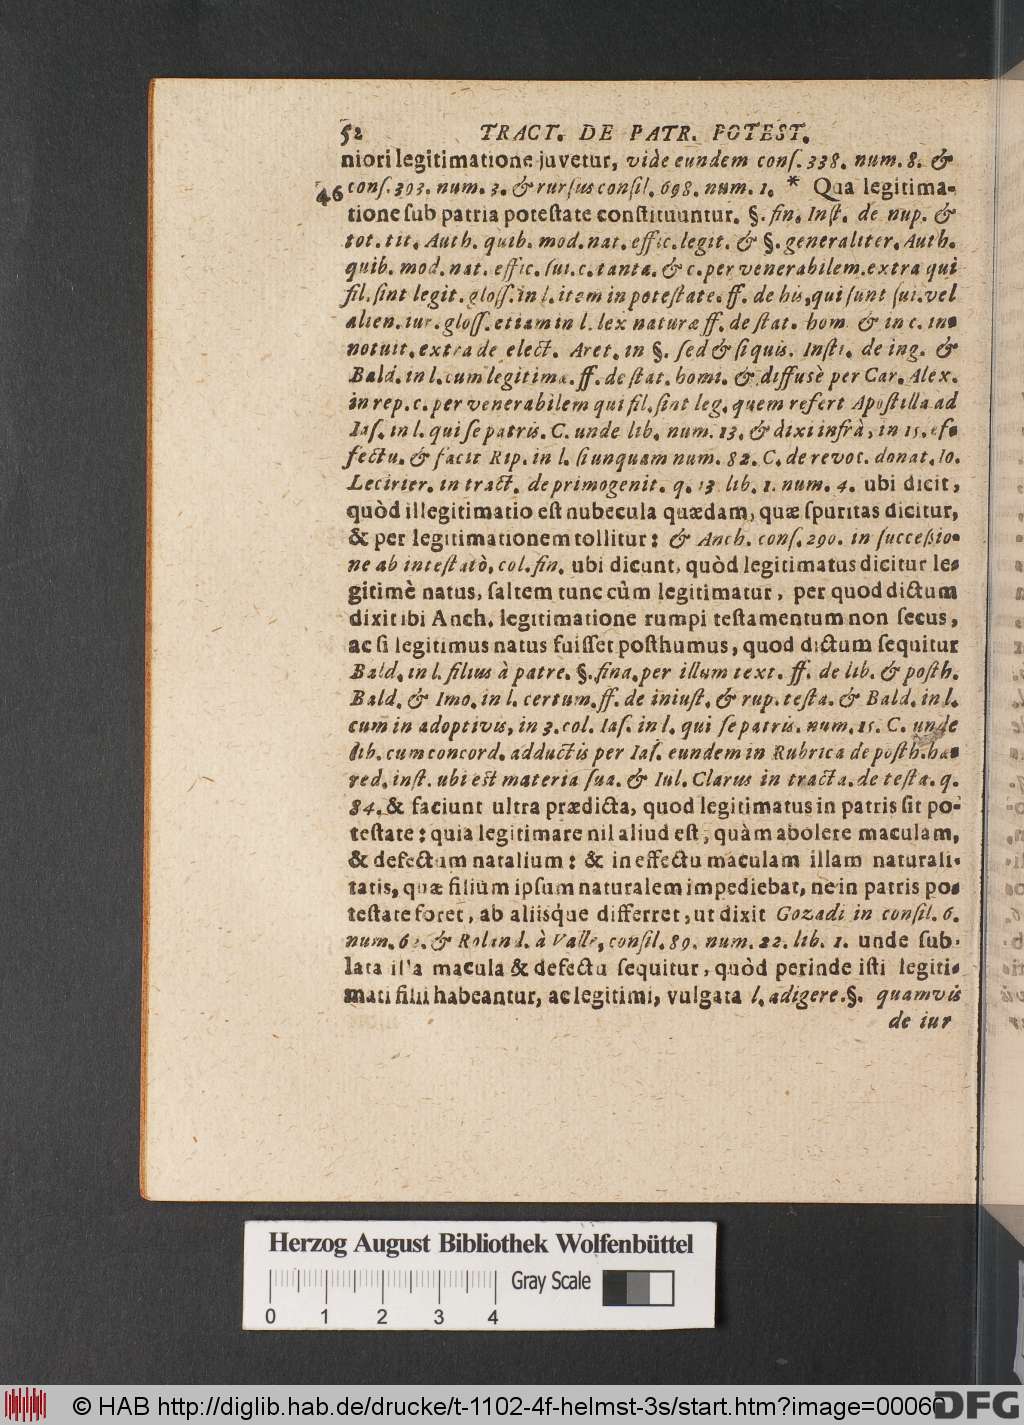 52 TRACT. DE PATR. POTEST.
niori legitimatione juvetur, vide eundem conſ. 338. num. 8. &
46 conſ. 393. num. 3. & rurſus conſil. 698. num. 1. * Qua legitima-
tione ſub patria poteſtate conſtituuntur. §. fin. Inſt. de nup. &
tot. tit. Auth. quib. mod. nat. effic. legit. & §. generaliter. Auth.
quib. mod. nat. effic. ſui. c. tanta. & c. per venerabilem. extra qui
fil. ſint legit. gloſſ. in l. item in poteſtate. ff. de his, qui ſunt ſui. vel
alien. iur. gloſſ. etiam in l. lex naturæ ff. de ſtat. hom. & in c. in-
notuit. extra de elect. Aret. in §. ſed & ſi quis. Inſti. de ing. &
Bald. in l. cum legitima. ff. de ſtat. homi. & diffusè per Car. Alex.
in rep. c. per venerabilem qui fil. ſint leg. quem refert Apoſtilla ad
Iaſ. in l. qui ſe patris. C. unde lib. num. 13. & dixi infrà, in 15. ef-
fectu. & facit Rip. in l. ſi unquam num. 82. C. de revoc. donat. Io.
Lecirier. in tract. de primogenit. q. 13 lib. 1. num. 4. ubi dicit,
quòd illegitimatio eſt nubecula quædam, quæ ſpuritas dicitur,
& per legitimationem tollitur: & Anch. conſ. 290. in ſucceſſio-
ne ab inteſtatò. col. fin. ubi dicunt, quòd legitimatus dicitur le-
gitimè natus, ſaltem tunc cùm legitimatur, per quod dictum
dixit ibi Anch. legitimatione rumpi teſtamentum non ſecus,
ac ſi legitimus natus fuiſſet poſthumus, quod dictum ſequitur
Bald. in l. filius à patre. §. fina. per illum text. ff. de lib. & poſth.
Bald. & Imo. in l. certum. ff. de iniuſt. & rup. teſta. & Bald. in l.
cum in adoptivis, in 3. col. Iaſ. in l. qui ſe patris. num. 15. C. unde
lib. cum concord. adductis per Iaſ. eundem in Rubrica de poſth. hæ-
red. inſt. ubi eſt materia ſua. & Iul. Clarus in tracta. de teſta. q.
84. & faciunt ultra prædicta, quod legitimatus in patris ſit po-
teſtate: quia legitimare nil aliud eſt, quàm abolere maculam,
& defectum natalium: & in effectu maculam illam naturali-
tatis, quæ filium ipſum naturalem impediebat, ne in patris po-
teſtate foret, ab aliisque differret, ut dixit Gozadi in conſil. 6.
num. & Roland. à Valle, conſil. 89. num. 22. lib. 1. unde ſub-
lata illa macula & defectu ſequitur, quòd perinde iſti legiti-
mati filii habeantur, ac legitimi, vulgata l. adigere. §. quamvis
de iur
Herzog August Bibliothek Wolfenbüttel
Gray Scale
0 1 2 3 4
© HAB http://diglib.hab.de/drucke/t-1102-4f-helmst-3s/start.htm?image=00060
DFG